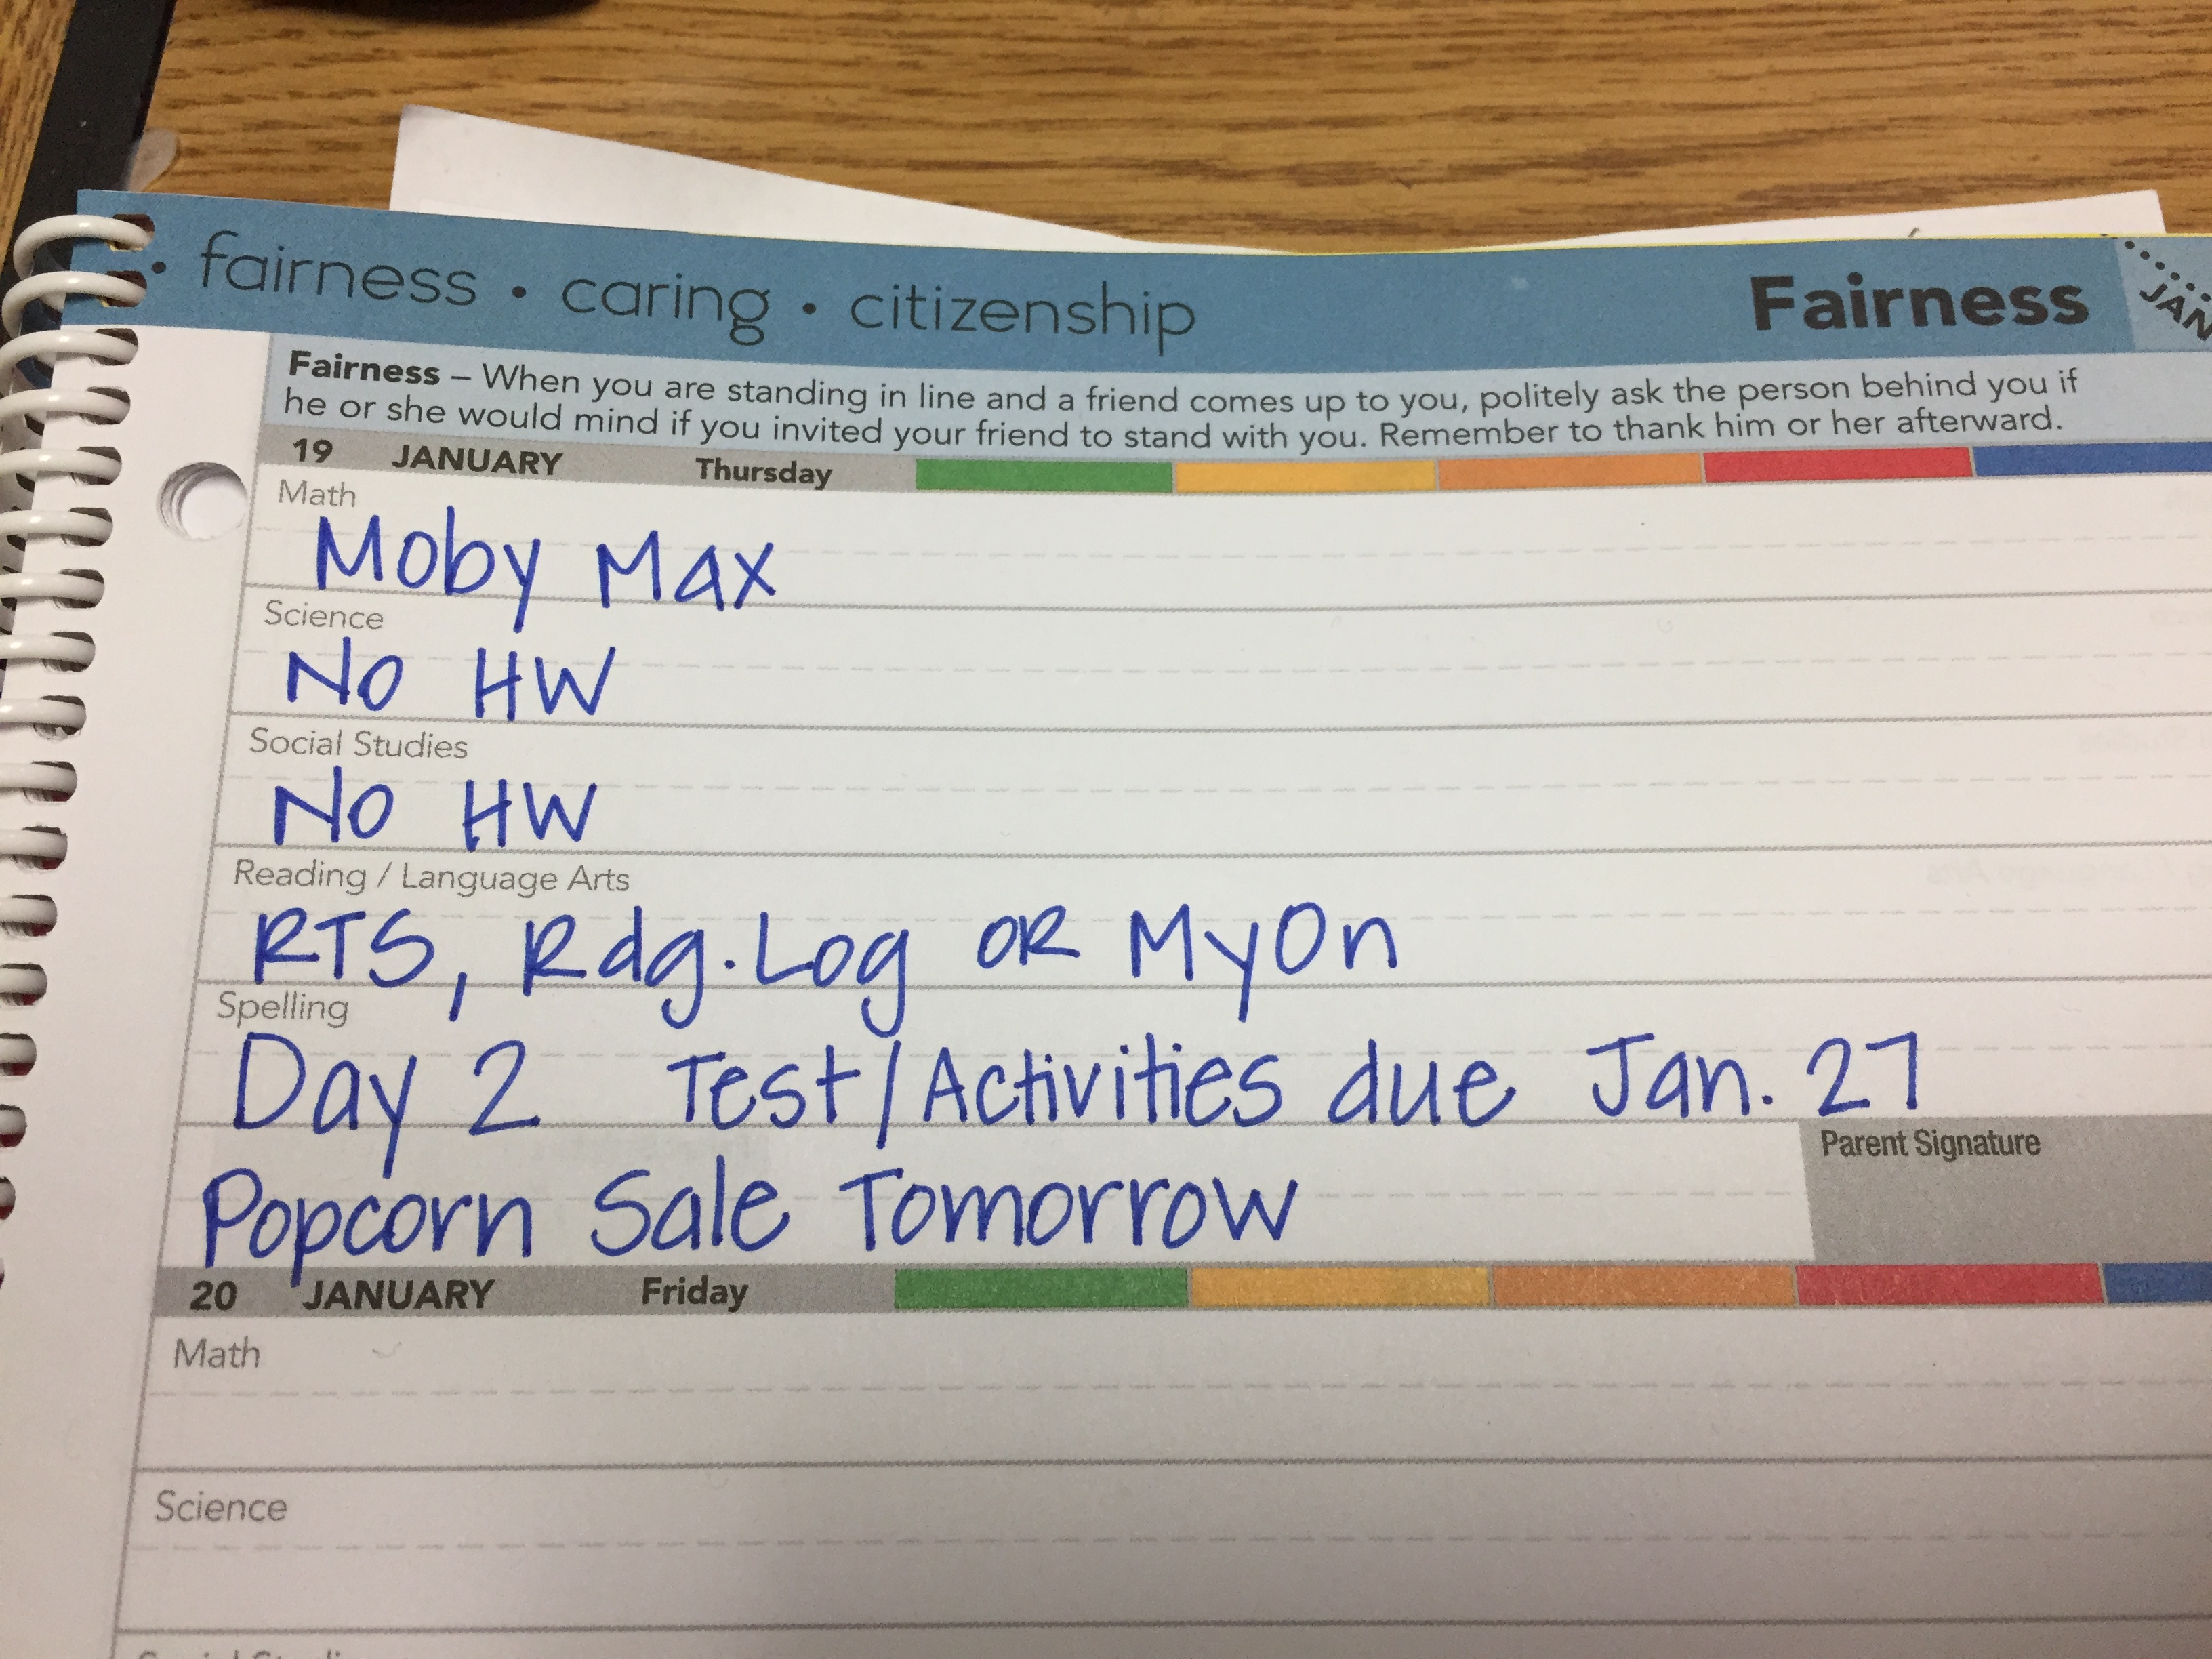 • fairness • caring • citizenship Fairness JAN
Fairness – When you are standing in line and a friend comes up to you, politely ask the person behind you if
he or she would mind if you invited your friend to stand with you. Remember to thank him or her afterward.
19 JANUARY Thursday
Math
Moby Max
Science
No HW
Social Studies
No HW
Reading / Language Arts
RTS, Rdg. Log OR MyOn
Spelling
Day 2 Test/Activities due Jan. 27
Parent Signature
Popcorn Sale Tomorrow
20 JANUARY Friday
Math
Science
Social Studies